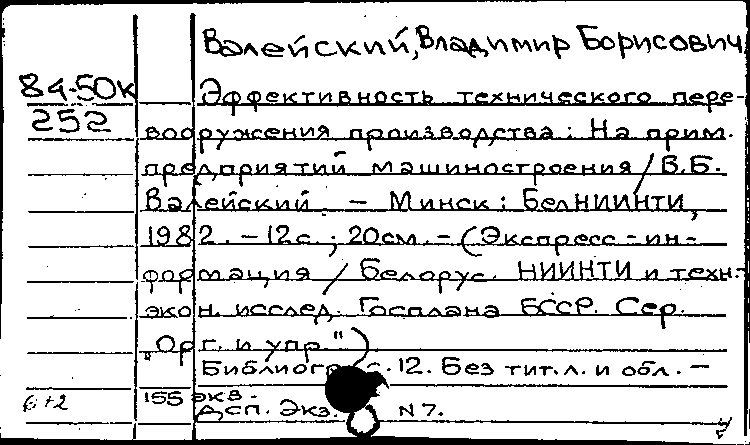 Валейский, Владимир Борисович
84-50к
252
Эффективность технического пере-
вооружения производства: На прим.
предприятий машиностроения / В.Б.
Валейский. - Минск: БелНИИНТИ,
1982. - 12с.; 20см. - (Экспресс-ин-
формация / Белорус. НИИНТИ и техн.-
экон. исслед. Госплана БССР. Сер.
"Орг. и упр.")
с. 12. Без тит.л. и обл. -
6+2
155 экв.
Дсп. Экз. N 7.